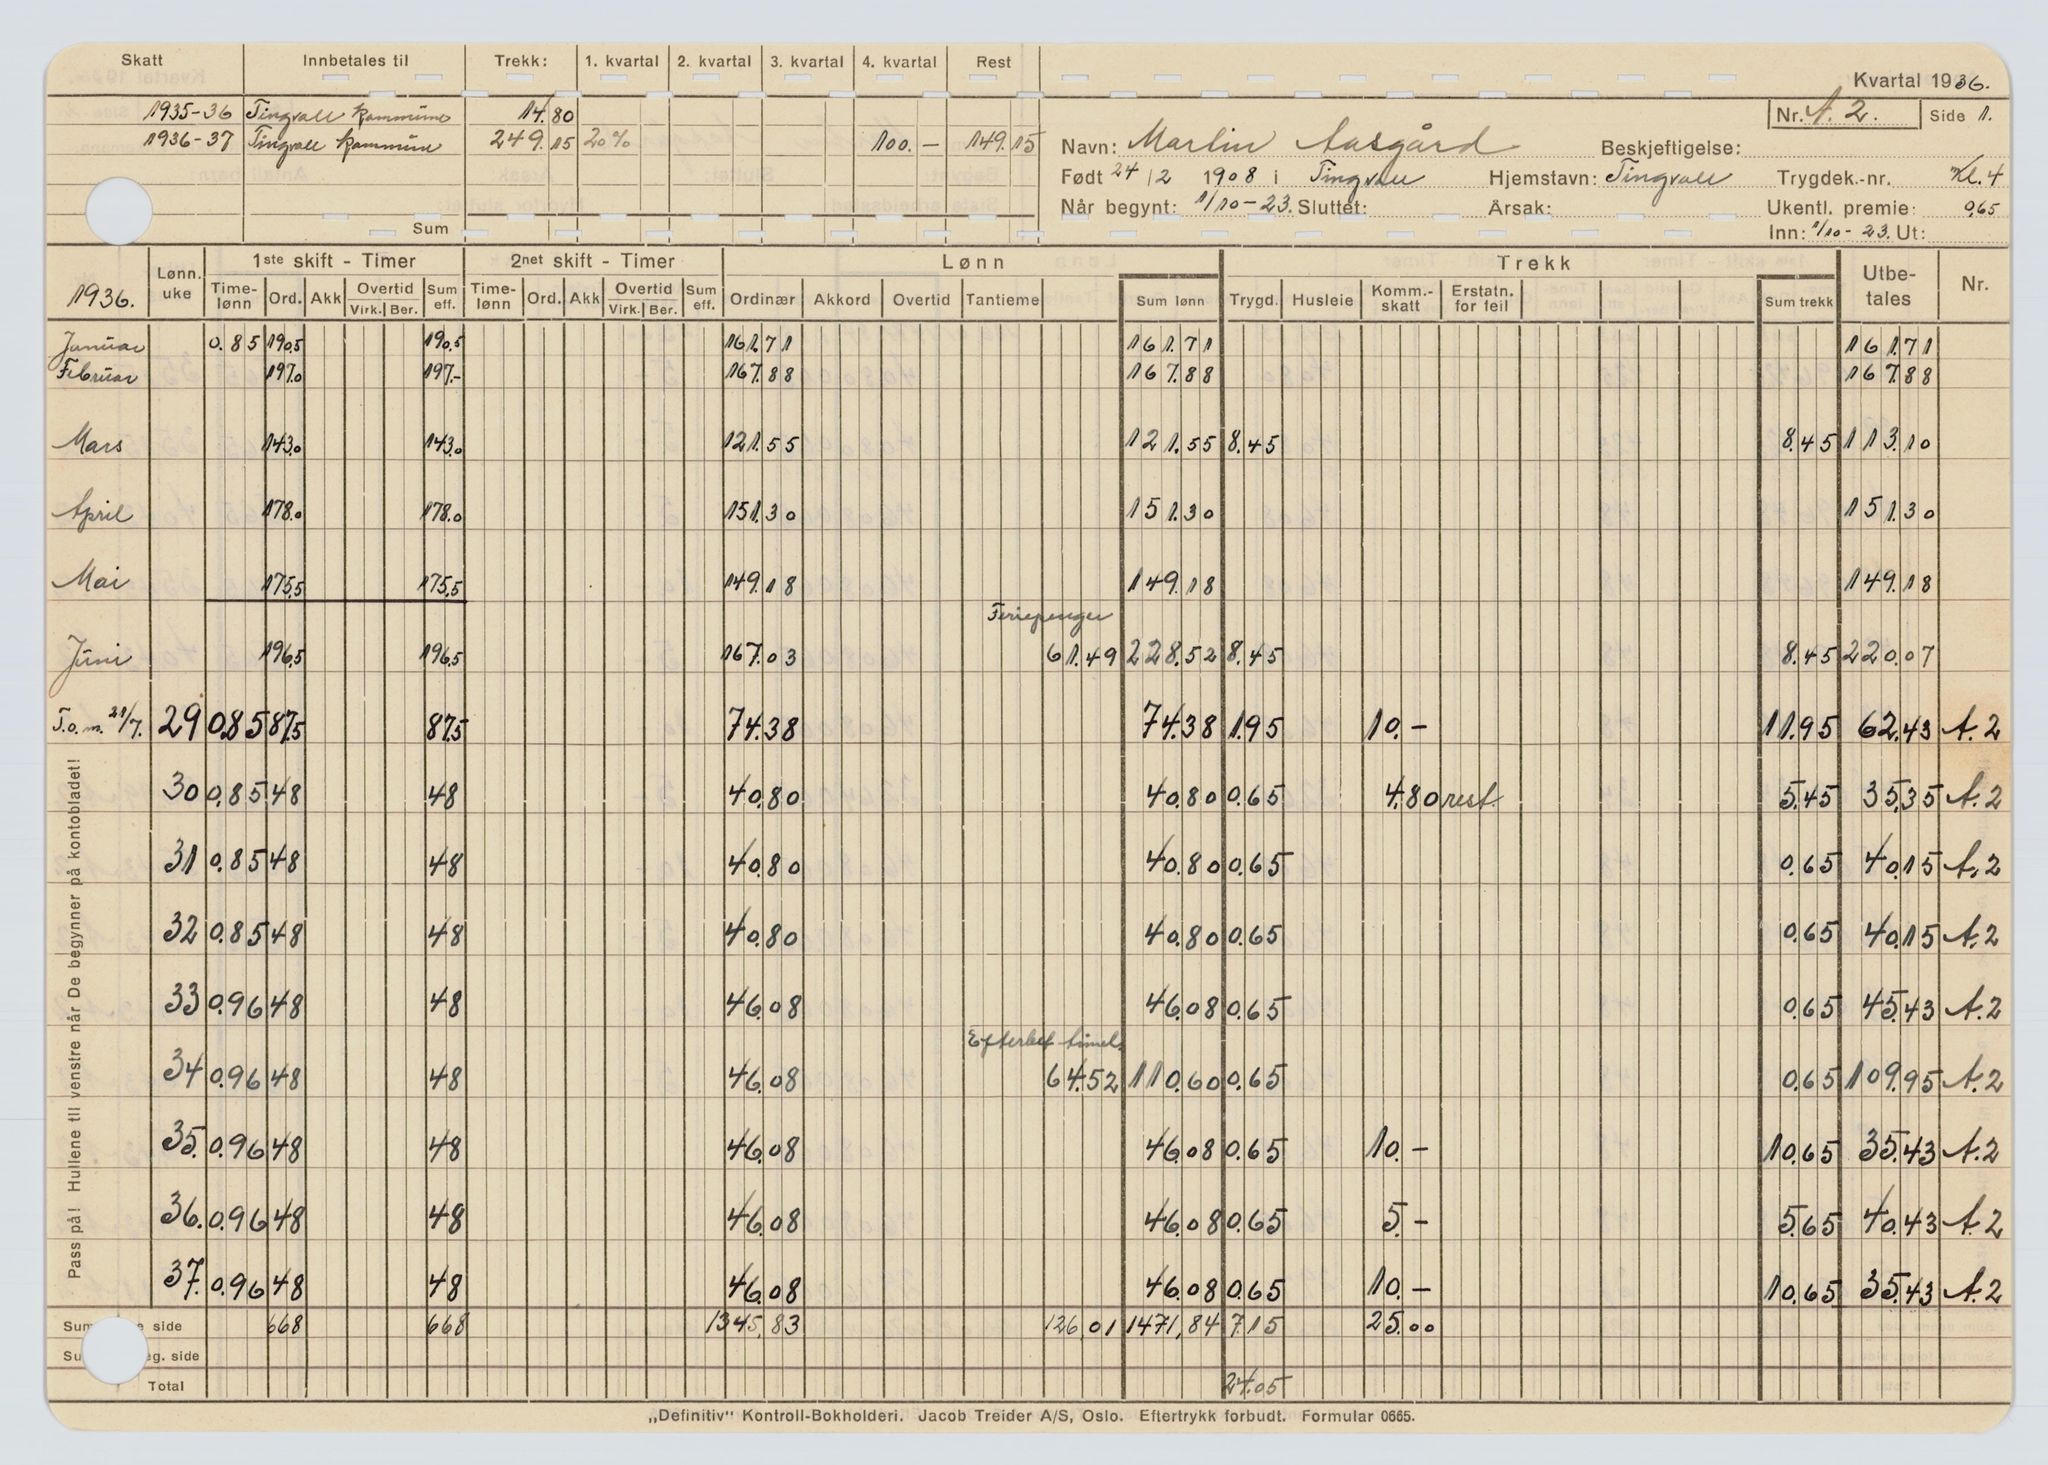 Skatt Innbetales til Trekk: 1. kvartal 2. kvartal 3. kvartal 4. kvartal Rest
1935-36 Tingvoll kommune 14.80
1936-37 Tingvoll kommune 249.15 20% 100.- 149.15
Sum
Kvartal 1936.
Nr. A. 2. Side 1.
Navn: Martin Aasgård Beskjeftigelse:
Født 24/2 1908 i Tingvoll Hjemstavn: Tingvoll Trygdek.-nr. Kl. 4
Når begynt: 1/10-23. Sluttet: Årsak: Ukentl. premie: 0,65
Inn: 1/10-23. Ut:
1936. Lønn. uke 1ste skift - Timer 2net skift - Timer Lønn Trekk Utbe-tales Nr.
Time-lønn Ord. Akk Overtid Virk. Ber. Sum eff. Time-lønn Ord. Akk Overtid Virk. Ber. Sum eff. Ordinær Akkord Overtid Tantieme Sum lønn Trygd. Husleie Komm.-skatt Erstatn. for feil Sum trekk
Januar 0.85 190.5 190.5 161.71 161.71 161.71
Februar 197.0 197.- 167.88 167.88 167.88
Mars 143.0 143.0 121.55 121.55 8.45 8.45 113.10
April 178.0 178.0 151.30 151.30 151.30
Mai 175.5 175.5 149.18 149.18 149.18
Feriepenger
Juni 196.5 196.5 167.03 61.49 228.52 8.45 8.45 220.07
T.o.m. 21/7. 29 0.85 87.5 87.5 74.38 74.38 1.95 10.- 11.95 62.43 A.2
30 0.85 48 48 40.80 40.80 0.65 4.80 rest 5.45 35.35 A.2
31 0.85 48 48 40.80 40.80 0.65 0.65 40.15 A.2
32 0.85 48 48 40.80 40.80 0.65 0.65 40.15 A.2
33 0.96 48 48 46.08 46.08 0.65 0.65 45.43 A.2
Efterbet. timel.
34 0.96 48 48 46.08 64.52 110.60 0.65 0.65 109.95 A.2
35. 0.96 48 48 46.08 46.08 0.65 10.- 10.65 35.43 A.2
36. 0.96 48 48 46.08 46.08 0.65 5.- 5.65 40.43 A.2
37. 0.96 48 48 46.08 46.08 0.65 10.- 10.65 35.43 A.2
Sum side 668 668 1345,83 126,01 1471,84 7.15 25.00
eg. side
Total 24.05
Pass på! Hullene til venstre når De begynner på kontobladet!
„Definitiv" Kontroll-Bokholderi. Jacob Treider A/S, Oslo. Eftertrykk forbudt. Formular 0665.